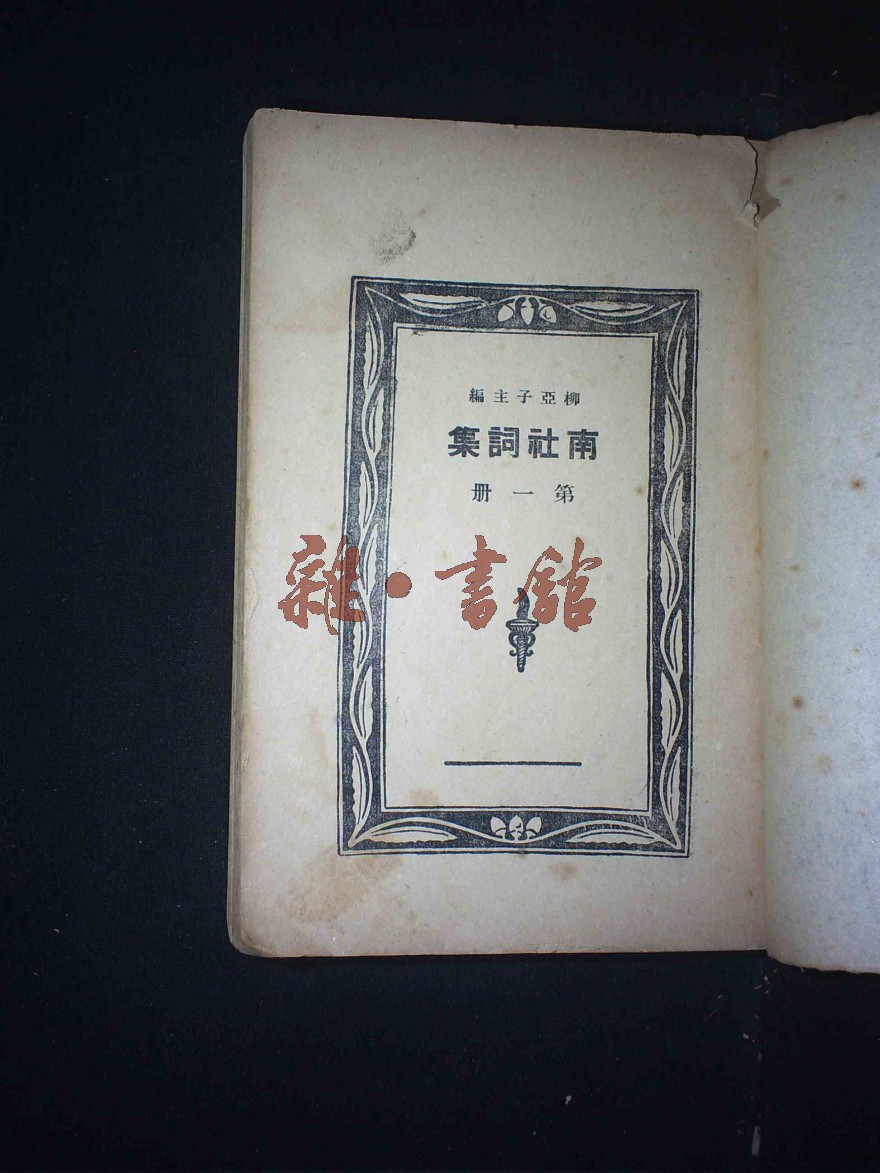 柳亞子主編
南社詞集
第一册
雜·書館